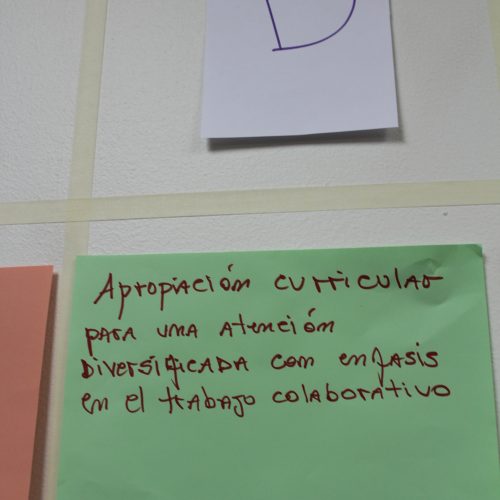 D
Apropiación curricular
para una atención
Diversificada con enfasis
en el trabajo colaborativo